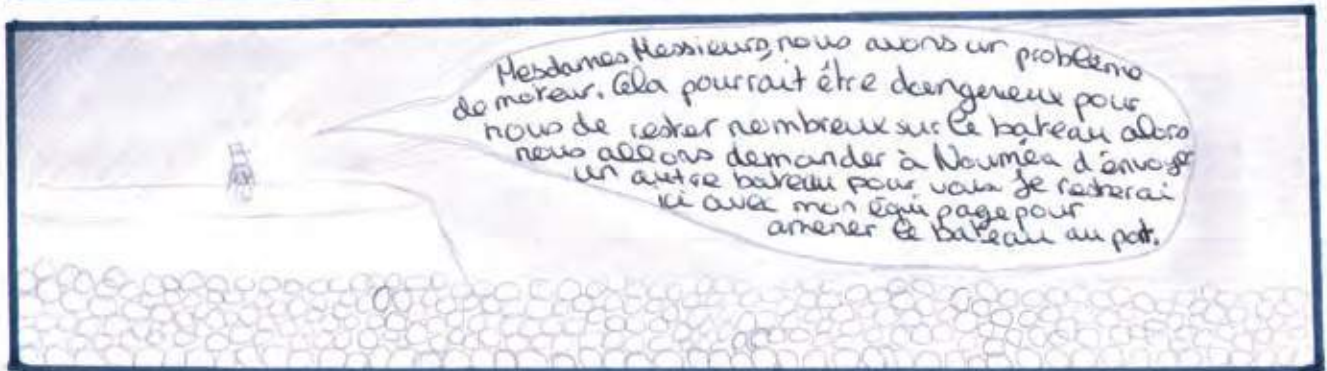 Mesdames Messieurs, nous avons un problème
de moteur. Cela pourrait être dangereux pour
nous de rester nombreux sur le bateau alors
nous allons demander à Nouméa d'envoyer
un autre bateau pour vous. Je resterai
ici avec mon équipage pour
amener le bateau au port.